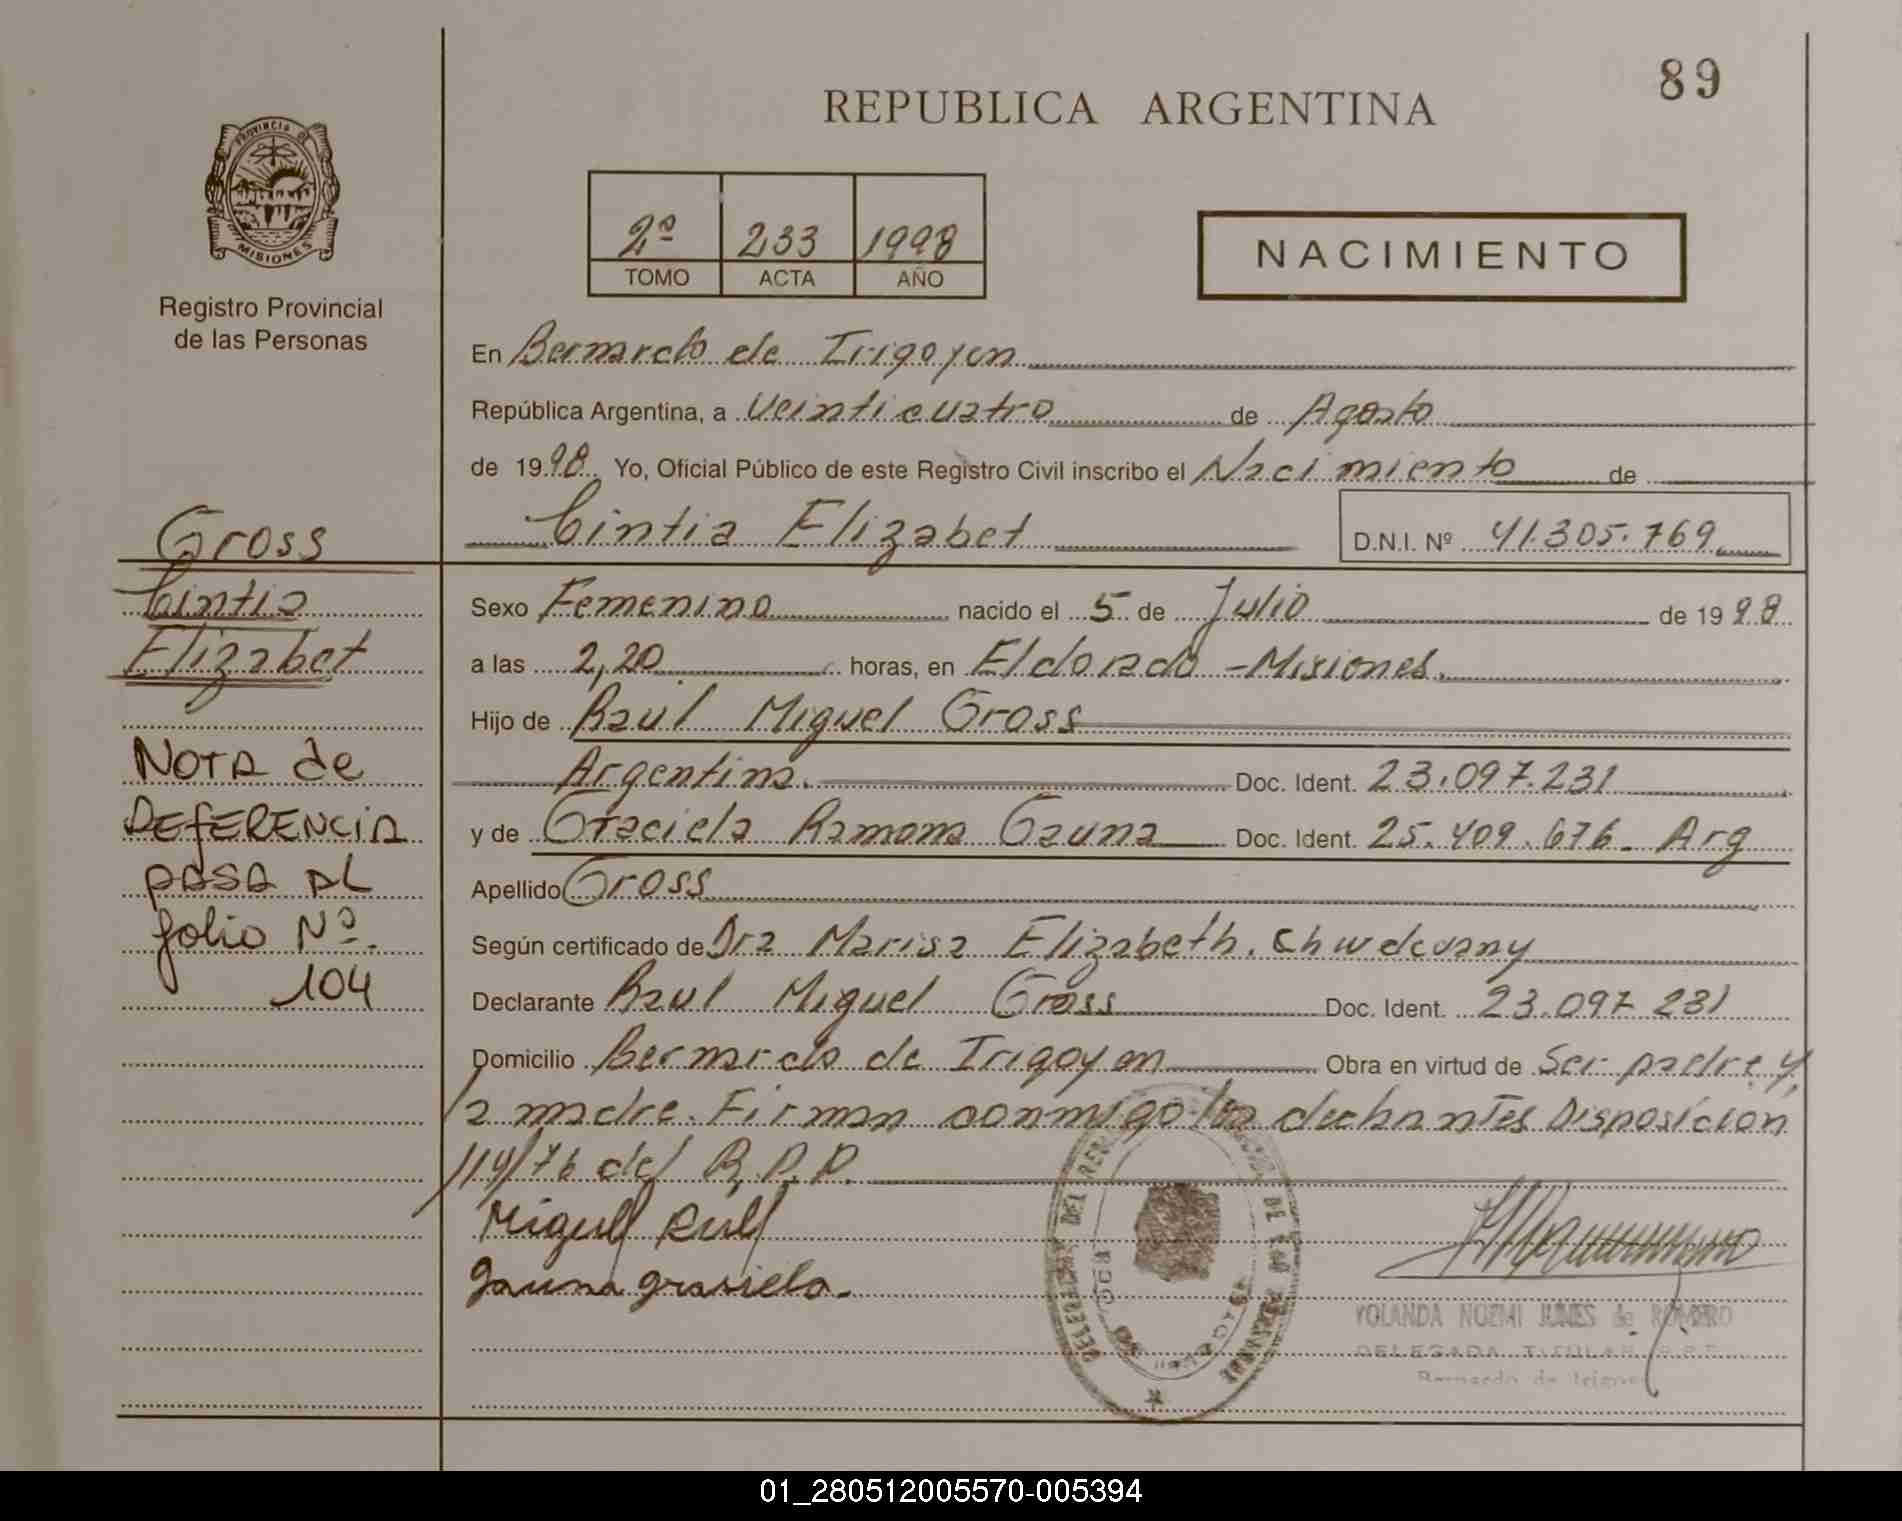 89
REPUBLICA ARGENTINA
PROVINCIA DE
MISIONES
Registro Provincial
de las Personas
2º 233 1998
TOMO ACTA AÑO
NACIMIENTO
En Bernardo de Irigoyen
República Argentina, a Veinticuatro de Agosto
de 1998 Yo, Oficial Público de este Registro Civil inscribo el Nacimiento de
Cintia Elizabet D.N.I. Nº 41.305.769
Sexo Femenino nacido el 5 de Julio de 1998
a las 2,20 horas, en Eldorado - Misiones.
Hijo de Raúl Miguel Gross
Argentina. Doc. Ident. 23.097.231
y de Graciela Ramona Gauna Doc. Ident. 25.409.676. Arg
Apellido Gross
Según certificado de Dra Marisa Elizabeth.
Declarante Raul Miguel Gross Doc. Ident. 23.097 231
Domicilio Bernardo de Irigoyen Obra en virtud de Ser padre y
la madre. Firman conmigo los Disposicion
114/76 del R.P.P.
Miguel Raul
Gauna grasiela.
YOLANDA NOEMI JUNES de ROMERO
DELEGADA TITULAR R.P.P.
Bernardo de Irigoyen
Gross
Cintia
Elizabet
NOTA de
REFERENCIA
PASA AL
folio Nº.
104
01_280512005570-005394